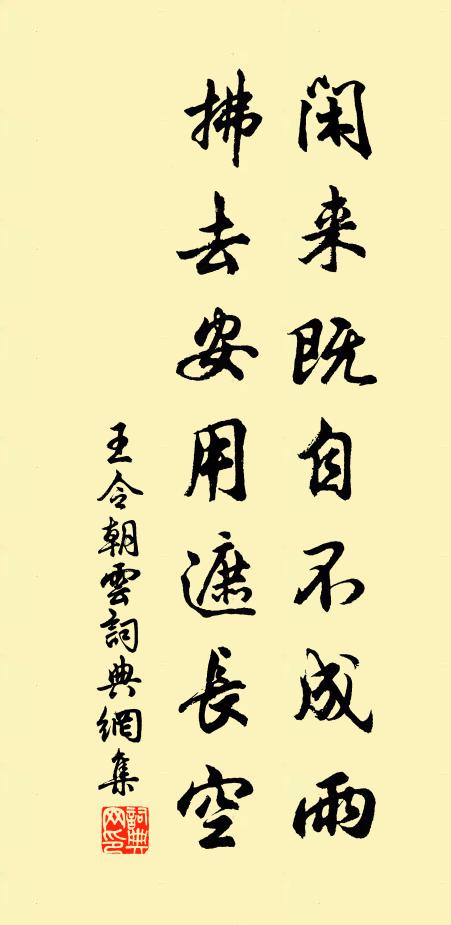 闲来既自不成雨
拂去安用遮长空
王令朝雲詞典網集
詞典网印